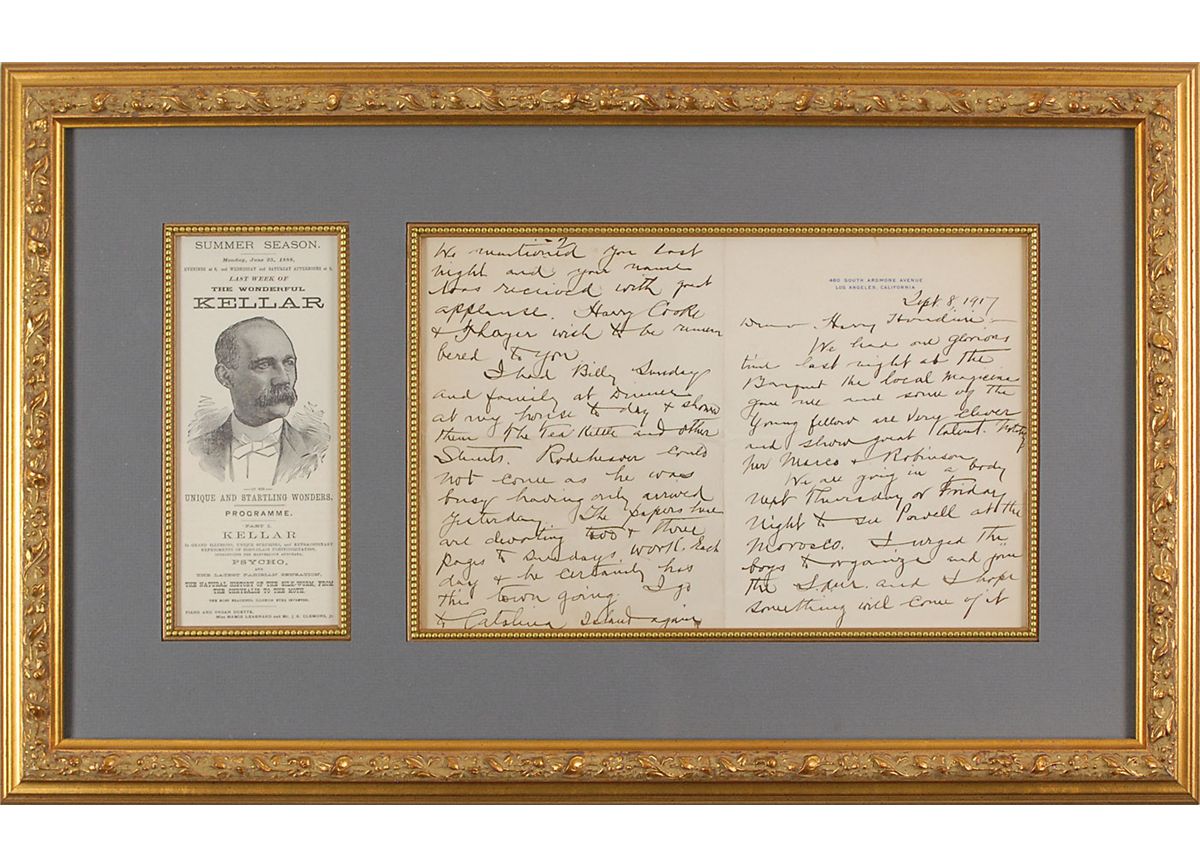 SUMMER SEASON.
Monday, June 25, 1888,
EVENINGS at 8, and WEDNESDAY and SATURDAY AFTERNOONS at 2,
LAST WEEK OF
THE WONDERFUL
KELLAR
—IN HIS—
UNIQUE AND STARTLING WONDERS.
PROGRAMME.
PART I.
KELLAR
In GRAND ILLUSIONS, and EXTRAORDINARY
EXPERIMENTS OF
PSYCHO,
AND
THE LATEST PARISIAN SENSATION,
THE NATURAL HISTORY OF THE SILK-WORM, FROM
THE CHRYSALIS TO THE MOTH.
THE MOST BEAUTIFUL ILLUSION EVER INVENTED.
PIANO AND ORGAN DUETTS,
Miss MAMIE and Mr. J. S. CLEMONS, Jr.
We mentioned you last
night and your name
was received with great
applause. Harry Cooke
& Thayer wish to be remem
bered to you
I had Billy Sunday
and family at Dinner
at my house to day & show
them the Tea Kettle and other
Stunts. Rodeheaver could
not come as he was
busy having only arrived
yesterday. The papers here
are devoting two & three
pages to Sundays work. Each
day & he certainly has
this town going. I go
to Catalina Island again
460 SOUTH ARDMORE AVENUE
LOS ANGELES, CALIFORNIA
Sept 8, 1917
Dear Harry Houdini –
We had one glorious
time last night at the
Banquet the local magicians
gave me and some of the
young fellow are very clever
and show great talent.
Marco & Robinson
We are going in a body
next Thursday or Friday
night to see Powell at the
Morosco. I urged the
boys to organize and join
the S.A.M. and I hope
something will come of it